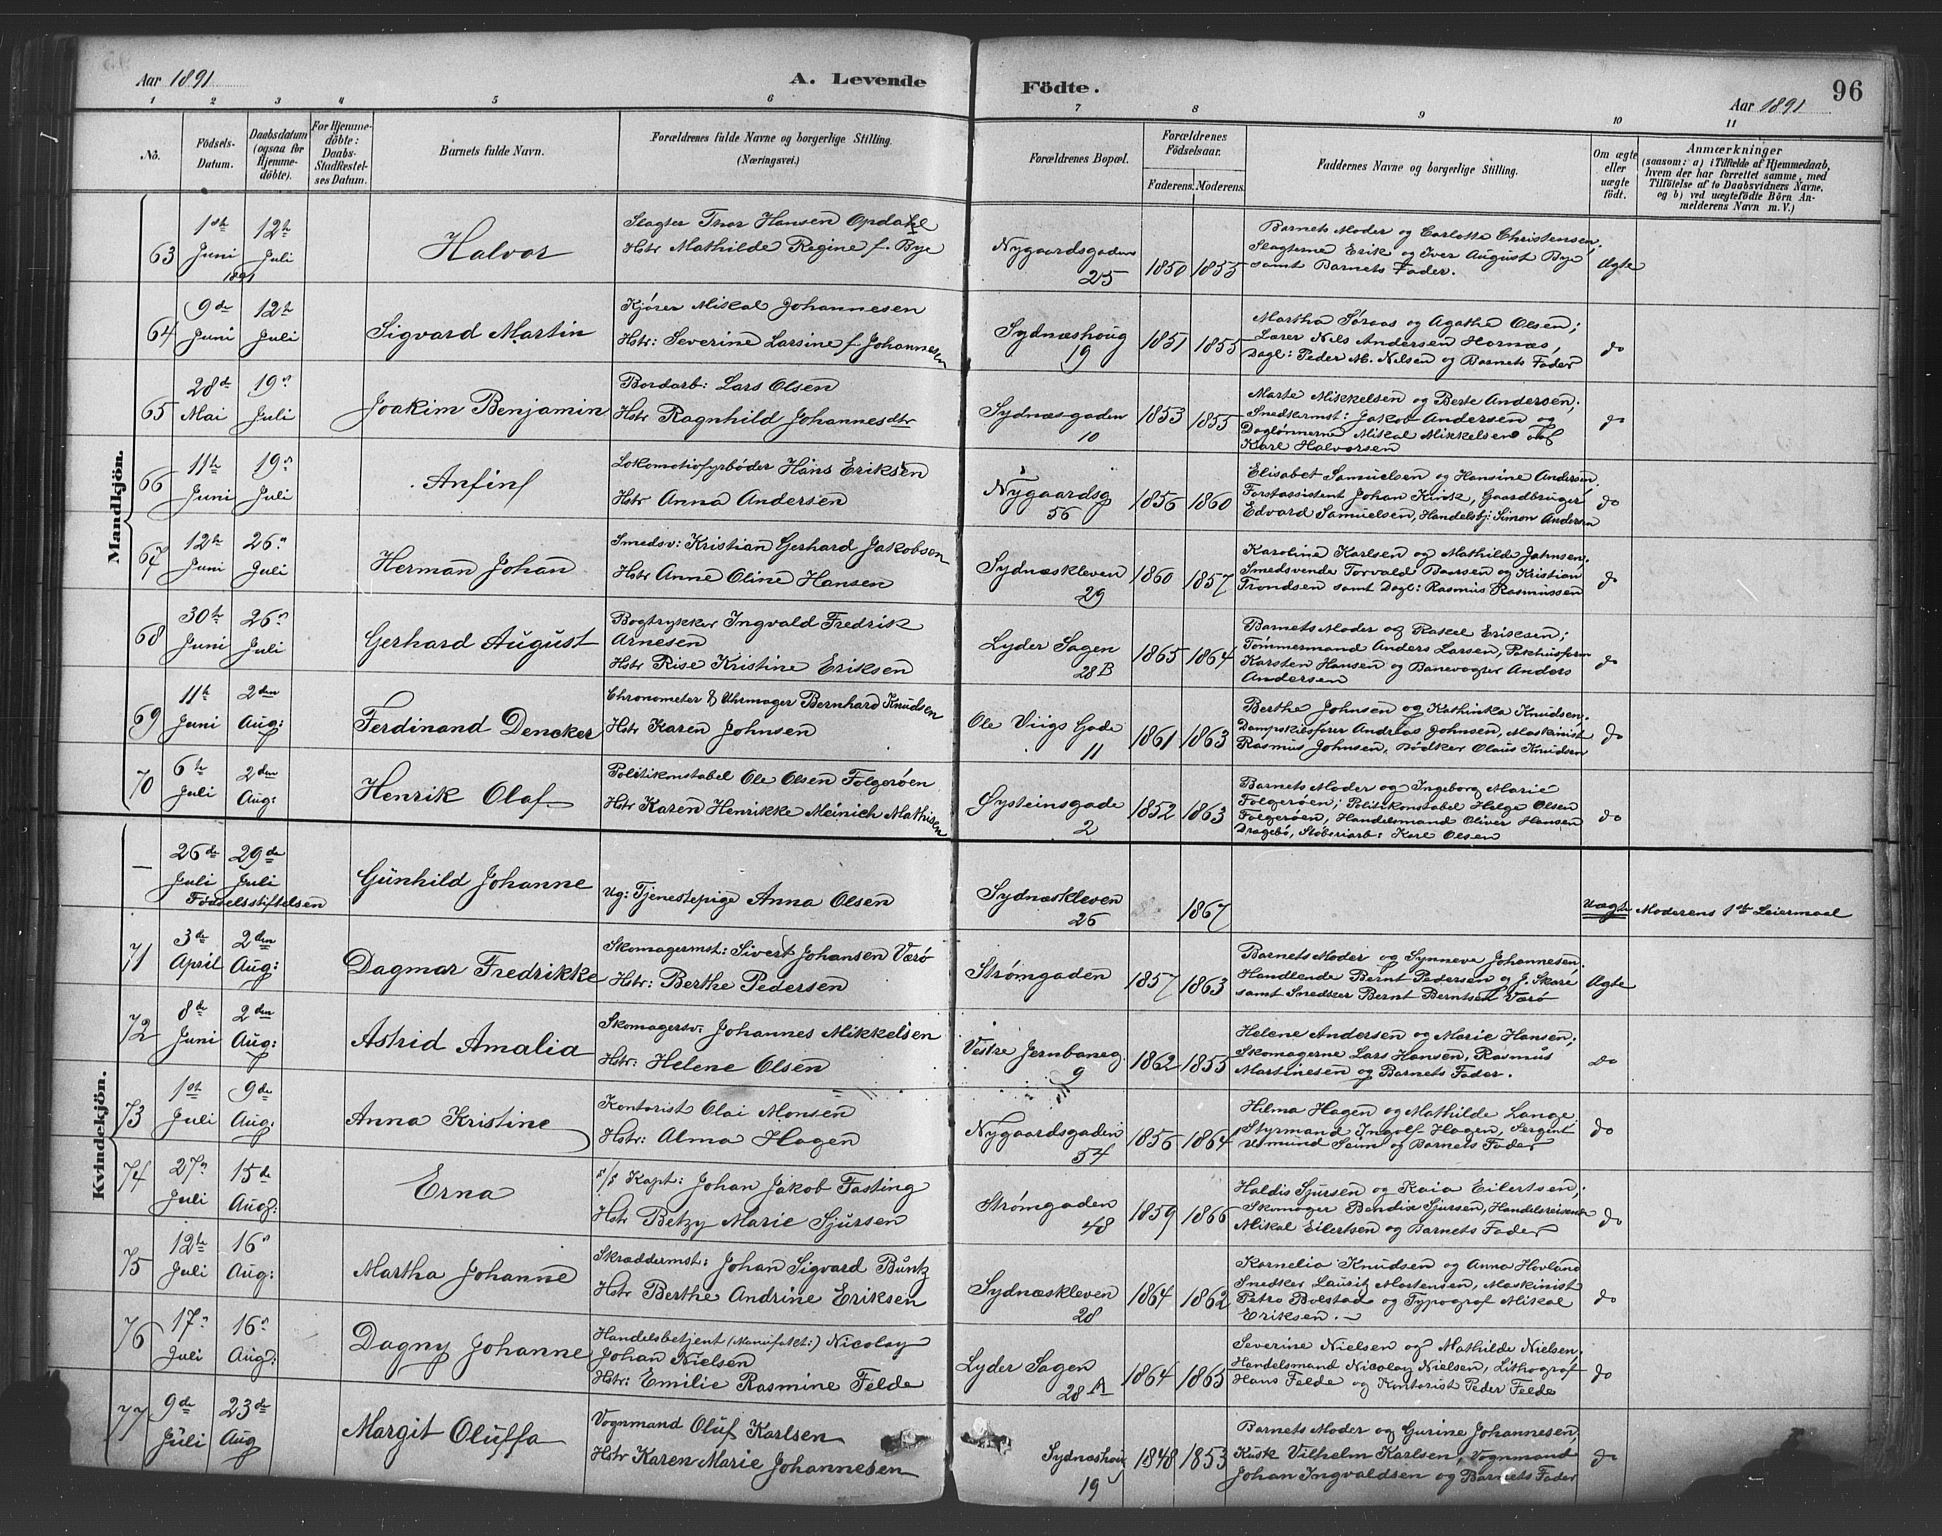 Aar 1891
A. Levende
Födte.
Aar 1891
96
1 2 3 4 5 6 7 8 9 10 11
No.
Födsels-
Datum.
Daabsdatum
(ogsaa for
Hjemme-
döbte).
For Hjemme-
döbte:
Daabs-
Stadfæstel-
ses Datum.
Barnets fulde Navn.
Forældrenes fulde Navne og borgerlige Stilling.
(Næringsvei.)
Forældrenes Bopæl.
Forældrenes
Födselsaar.
Faderens. Moderens.
Faddernes Navne og borgerlige Stilling.
Om ægte
eller
uægte
födt.
Anmærkninger
(saasom: a) i Tilfælde af Hjemmedaab,
hvem der har forrettet samme, med
Tilföielse af to Daabsvidners Navne,
og b) ved uægtefödte Börn An-
melderens Navn m. V.)
Mandkjön.
63
1ste Juni 1891
12te Juli
Halvor
Slagter Thor Hansen Opdahl
Hstr Mathilde Regine f. Bye
Nygaardsgaden
25
1850 1855
Barnets Moder og Carlotte Christensen;
Slagterne Erik og Iver August Bye
samt Barnets Fader.
Ægte
64
9de Juni
12te Juli
Sigvard Martin
Kjører Mikal Johannesen
Hstr: Severine Larsine f. Johannesen
Sydnæshoug
19
1851 1855
Martha Søraas og Agathe Olsen;
Lærer Nils Andersen Hornæs,
Dagl: Peder M. Nilsen og Barnets Fader
do
65
28de Mai
19de Juli
Joakim Benjamin
Bordarb: Lars Olsen
Hstr Ragnhild Johannesdtr
Sydnæsgaden
10
1853 1855
Marte Mikkelsen og Berte Andersen;
Snedkermst: Jakob Andersen og
Daglønnerne Mikal Mikkelsen og
Karl Halvorsen
do
66
11te Juni
19de Juli
Anfinf
Lokomotivfyrbøder Hans Eriksen
Hstr Anna Andersen
Nygaardsg
56
1856 1860
Elisabet Samuelsen og Hansine Andersen.
Forstassistent Johan Kirsk, Gaardbruger
Edvard Samuelsen, Handelsbj: Simon Andersen
do
67
12te Juni
26de Juli
Herman Johan
Smedsv: Kristian Gerhard Jakobsen
Hstr Anne Oline Hansen
Sydnæskleven
29
1860 1857
Karoline Karlsen og Mathilde Jahnsen;
Smedsvende Torvald Baarsen og Kristian
Trondsen samt Dagl: Rasmus Rasmussen
do
68
30te Juni
26de Juli
Gerhard August
Bogtrykker Ingvald Fredrik
Arnesen
Hstr Rise Kristine Eriksen
Lyder Sagen
28B
1865 1864
Barnets Moder og Rakel Eriksen;
Tømmermand Anders Larsen, Pakhusform
Karsten Hansen og Banevogter Anders
Andersen
do
69
11te Juni
2den Aug:
Ferdinand Dencker
Chronometer & Uhrmager Bernhard Knudsen
Hstr Karen Johnsen
Ole Viigs Gade
11
1861 1863
Berthe Johnsen og Kathinka Knudsen.
Dampskibsfører Andreas Johnsen, Maskinist
Rasmus Johnsen, Bødker Olaus Knudsen
do
70
6te Juli
2den Aug:
Henrik Olaf
Politikonstabel Ole Olsen Folgerøen
Hstr Karen Henrikke Meinich Mathisen
Øysteinsgade
2
1852 1863
Barnets Moder og Ingeborg Marie
Folgerøen; Politikonstabel Helge Olsen
Folgerøen, Handelsmand Oliver Hansen
Dragebø, Støberiarb: Karl Olsen
do
Kvindekjön.
—
26de Juli
29de Juli
Fødselsstiftelsen
Gunhild Johanne
Ug: Tjenestepige Anna Olsen
Sydnæskleven
26
1867
Uægte
Moderens 1ste Leiermaal
71
3de April
2den Aug:
Dagmar Fredrikke
Skomagermst: Sivert Johansen Værø
Hstr: Berthe Pedersen
Strømgaden
1857 1863
Barnets Moder og Synneva Johannesen.
Handlende Bernt Pedersen og J. Skare
samt Snedker Bernt Berntsen Værø
Ægte
72
8de Juni
2den Aug:
Astrid Amalia
Skomagersv: Johannes Mikkelsen
Hstr: Helene Olsen
Vestre Jernbaneg.
9
1862 1855
Helene Andersen og Marie Hansen;
Skomagerne Lars Hansen, Rasmus
Martinesen og Barnets Fader.
do
73
1ste Juli
9de Aug:
Anna Kristine
Kontorist Olai Monsen
Hstr: Alma Hagen
Nygaardsgaden
54
1856 1864
Hilma Hagen og Mathilde Lange
Styrmand Ingolf Hagen, Sergent
Asmund Seim og Barnets Fader
do
74
27de Juli
15de Aug:
Erna
s/s Kapt: Johan Jakob Fasting
Hstr Betzy Marie Sjursen
Strømgaden
48
1859 1866
Haldis Sjursen og Kaia Eilertsen;
Skomager Bendix Sjursen, Handelsreisende
Mikal Eilertsen og Barnets Fader
do
75
12te Juli
16de Aug:
Martha Johanne
Skræddermst: Johan Sigvard Buntz
Hstr Berthe Andrine Eriksen
Sydnæskleven
28
1864 1862
Kornelia Knudsen og Anna Hovland
Snedker Lauritz Mortensen, Maskinist
Petro Bolstad og Typograf Mikal
Eriksen.
do
76
17de Juli
16de Aug:
Dagny Johanne
Handelsbetjent (Manufakt:) Nicolay
Johan Nielsen
Hstr: Emilie Rasmine Felde
Lyder Sagen
28A
1864 1865
Severine Nielsen og Mathilde Nielsen.
Handelsmand Nicolay Nielsen, Lithograf
Hans Felde og Kontorist Peder Felde
do
77
9de Juli
23de Aug
Margit Oluffa
Vognmand Oluf Karlsen
Hstr Karen Marie Johannesen
Sydnæshoug
19
1848 1853
Barnets Moder og Gurine Johannesen,
Kusk Vilhelm Karlsen, Vognmand
Johan Ingvaldsen og Barnets Fader
do